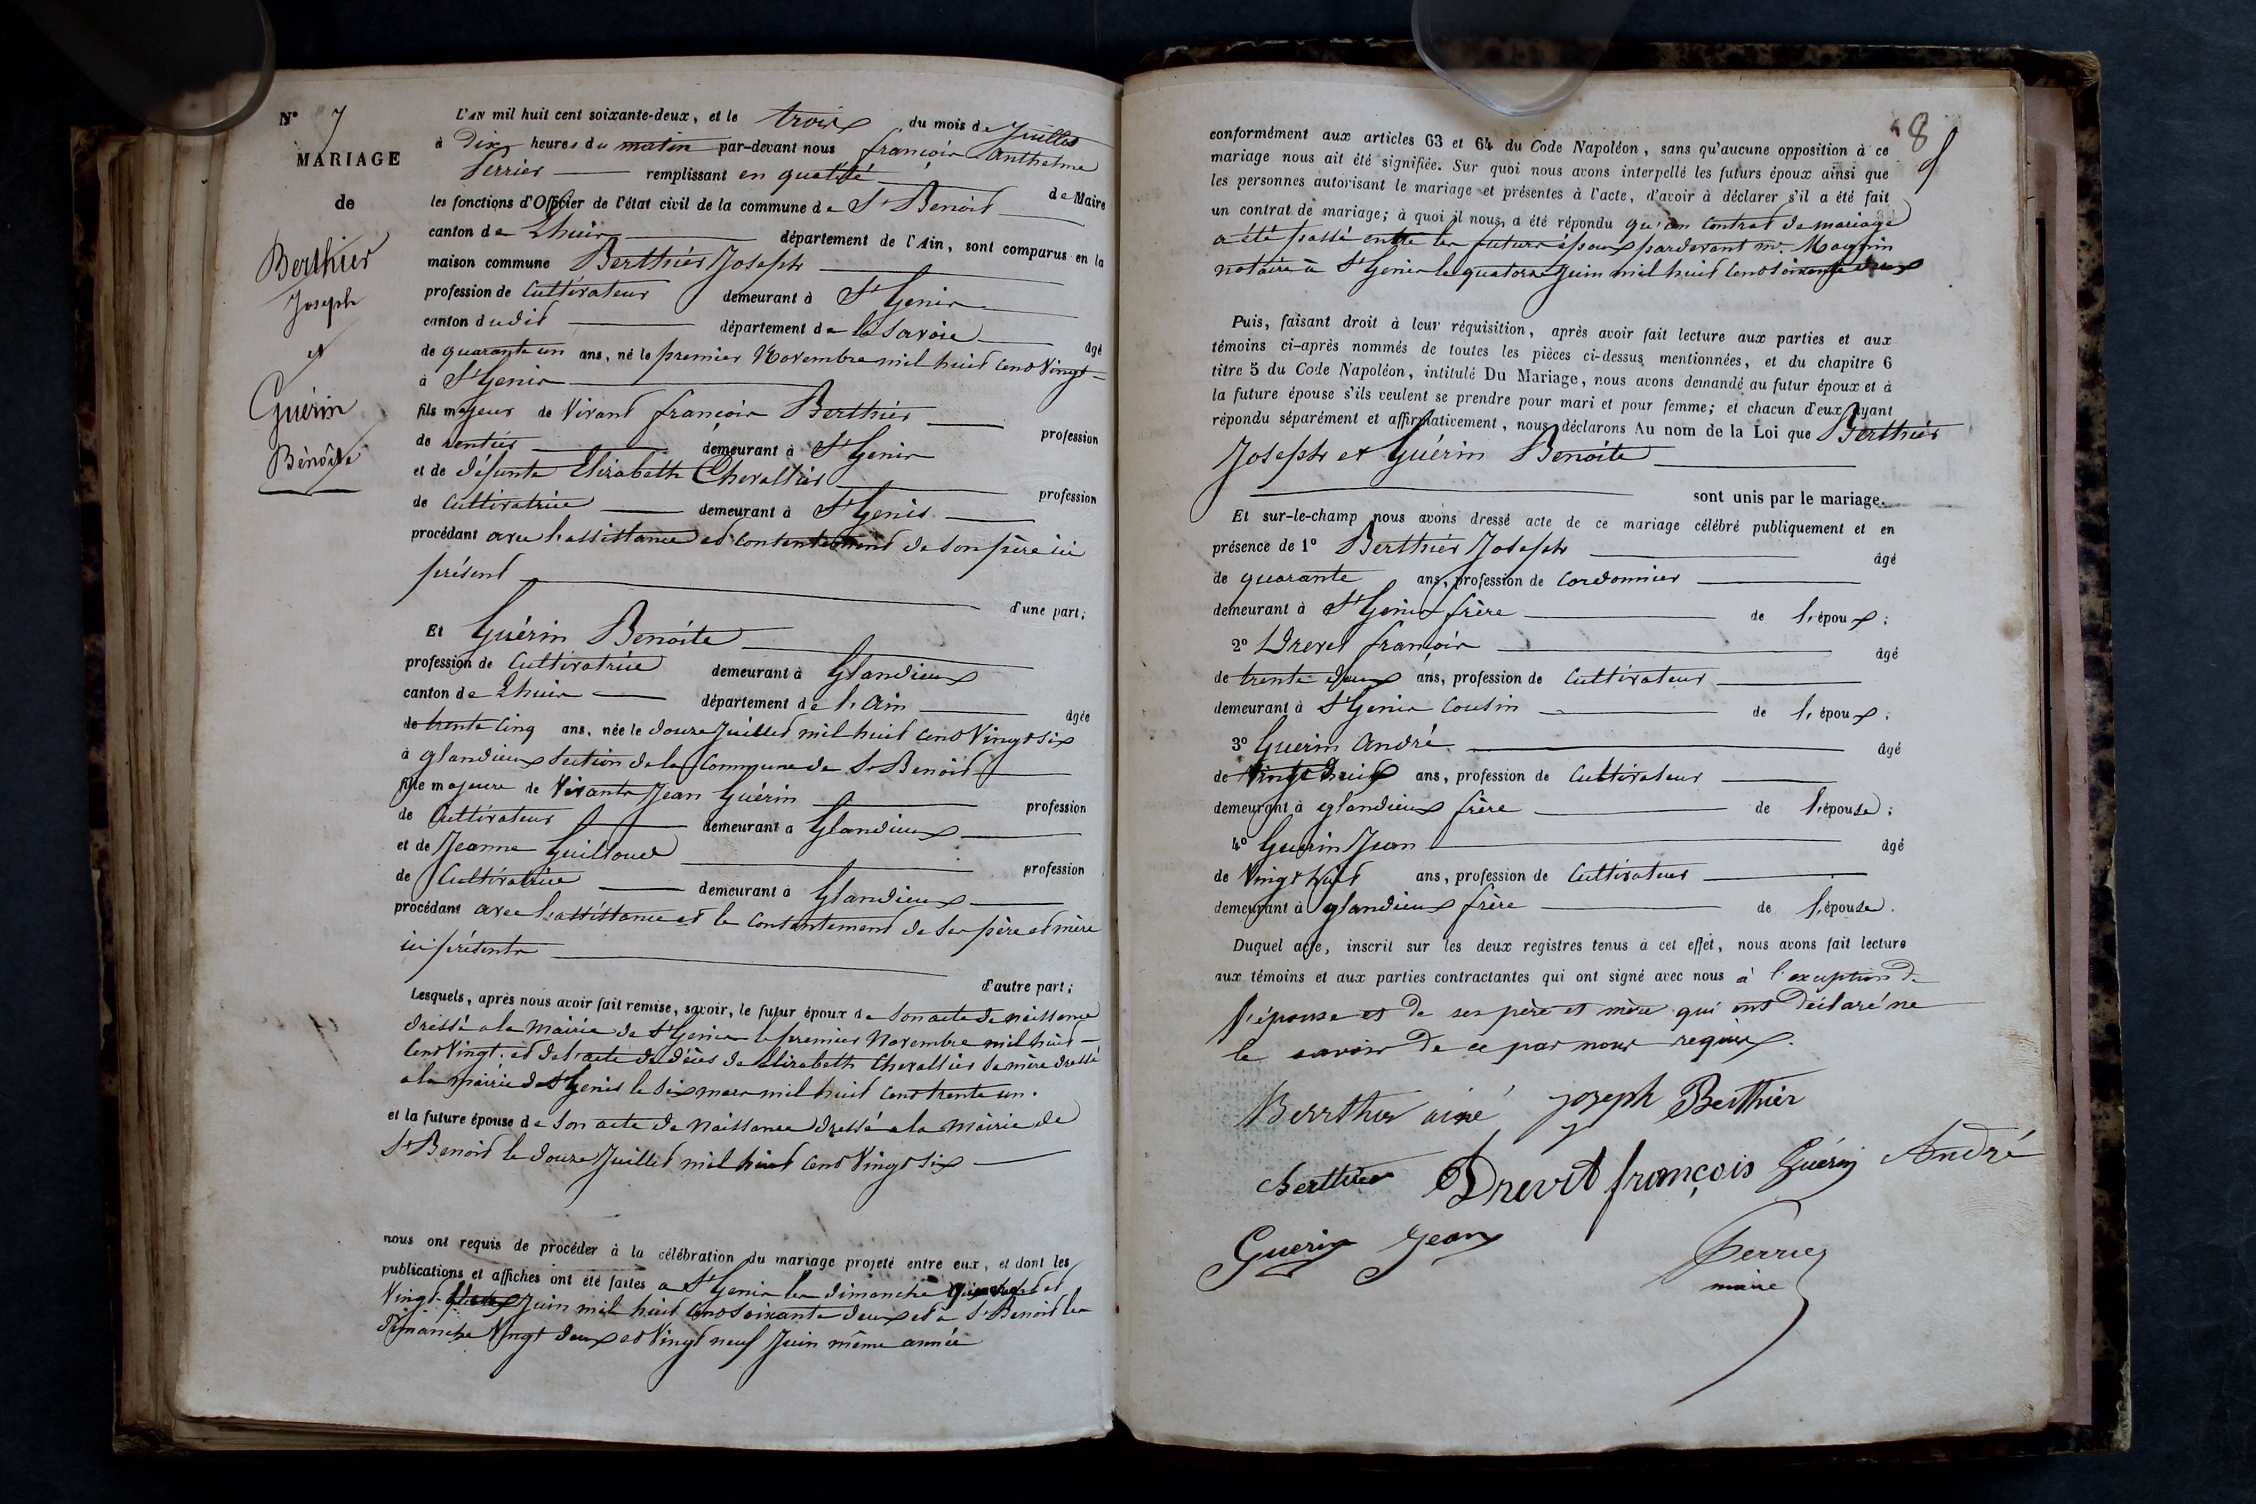 N° 7
MARIAGE
de
Berthier
Joseph
et
Guérin
Bénoîte
L'AN mil huit cent soixante-deux, et le trois du mois de Juillet
à Dix heures du matin par-devant nous françois Anthelme
Perrier remplissant en qualité de Maire
les fonctions d'Officier de l'état civil de la commune de St Benoit
canton de Lhuis département de l'Ain, sont comparus en la
maison commune Berthier Joseph
profession de Cultivateur demeurant à St Genis
canton dudit département de la Savoie âgé
de quarante un ans, né le premier Novembre mil huit cent Vingt
à St Genis
fils majeur de Vivant françois Berthier profession
de rentier demeurant à St Genis
et de défunte Elizabeth Chevallier profession
de Cultivatrice demeurant à St Genis
procédant avec l'assistance et consentement de son père ici
présent
d'une part;
Et Guérin Benoite
profession de Cultivatrice demeurant à Glandieux
canton de Lhuis département de l'Ain âgée
de trente cinq ans, née le douze Juillet mil huit cent Vingt six
à glandieux section de la Commune de St Benoit
fille majeure de Vivants Jean Guérin profession
de Cultivateur demeurant à Glandieux
et de Jeanne Guilloud profession
de Cultivatrice demeurant à Glandieux
procédant avec l'assistance et le consentement de ses père et mère
ici présents
d'autre part;
Lesquels, après nous avoir fait remise, savoir, le futur époux de son acte de naissance
dressé a la Mairie de St Genis le premier Novembre mil huit
Cent Vingt. et de l'acte de décès de Elizabeth Chevallier sa mère dressé
a la mairie de St Genis le six mars mil huit cent trente un.
et la future épouse de son acte de Naissance dressé a la Mairie de
St Benoit le douze Juillet mil huit cent Vingt six
nous ont requis de procéder à la célébration du mariage projeté entre eux, et dont les
publications et affiches ont été faites a St Genis les dimanche et
Vingt-deux Juin mil huit cent soixante deux et a St Benoit les
Dimanche Vingt deux et Vingt neuf Juin même année
8
conformément aux articles 63 et 64 du Code Napoléon, sans qu'aucune opposition à ce
mariage nous ait été signifiée. Sur quoi nous avons interpellé les futurs époux ainsi que
les personnes autorisant le mariage et présentes à l'acte, d'avoir à déclarer s'il a été fait
un contrat de mariage; à quoi il nous a été répondu qu'un contrat de mariage
a été passé entre les futurs époux pardevant me. Magnin
notaire à St Genis le quatorze Juin mil huit cent soixante deux
Puis, faisant droit à leur réquisition, après avoir fait lecture aux parties et aux
témoins ci-après nommés de toutes les pièces ci-dessus mentionnées, et du chapitre 6
titre 5 du Code Napoléon, intitulé Du Mariage, nous avons demandé au futur époux et à
la future épouse s'ils veulent se prendre pour mari et pour femme; et chacun d'eux ayant
répondu séparément et affirmativement, nous déclarons Au nom de la Loi que Berthier
Joseph et Guérin Benoîte
sont unis par le mariage.
Et sur-le-champ nous avons dressé acte de ce mariage célébré publiquement et en
présence de 1° Berthier Joseph âgé
de quarante ans, profession de cordonnier
demeurant à St Genis frère de l'époux;
2° Drevet françois âgé
de trente deux ans, profession de Cultivateur
demeurant à St Genis cousin de l'époux;
3° Guerin André âgé
de Vingt huit ans, profession de Cultivateur
demeurant à glandieux frère de l'épouse;
4° Guerin Jean âgé
de Vingt huit ans, profession de Cultivateur
demeurant à glandieux frère de l'épouse.
Duquel acte, inscrit sur les deux registres tenus à cet effet, nous avons fait lecture
aux témoins et aux parties contractantes qui ont signé avec nous à l'exception de
l'épouse et de ses père et mère qui ont Déclaré ne
le savoir de ce par nous requis.
Berrthier ainé Joseph Berthier
Berthier Drevet françois Guérin André
Guerin Jean Perrier
maire